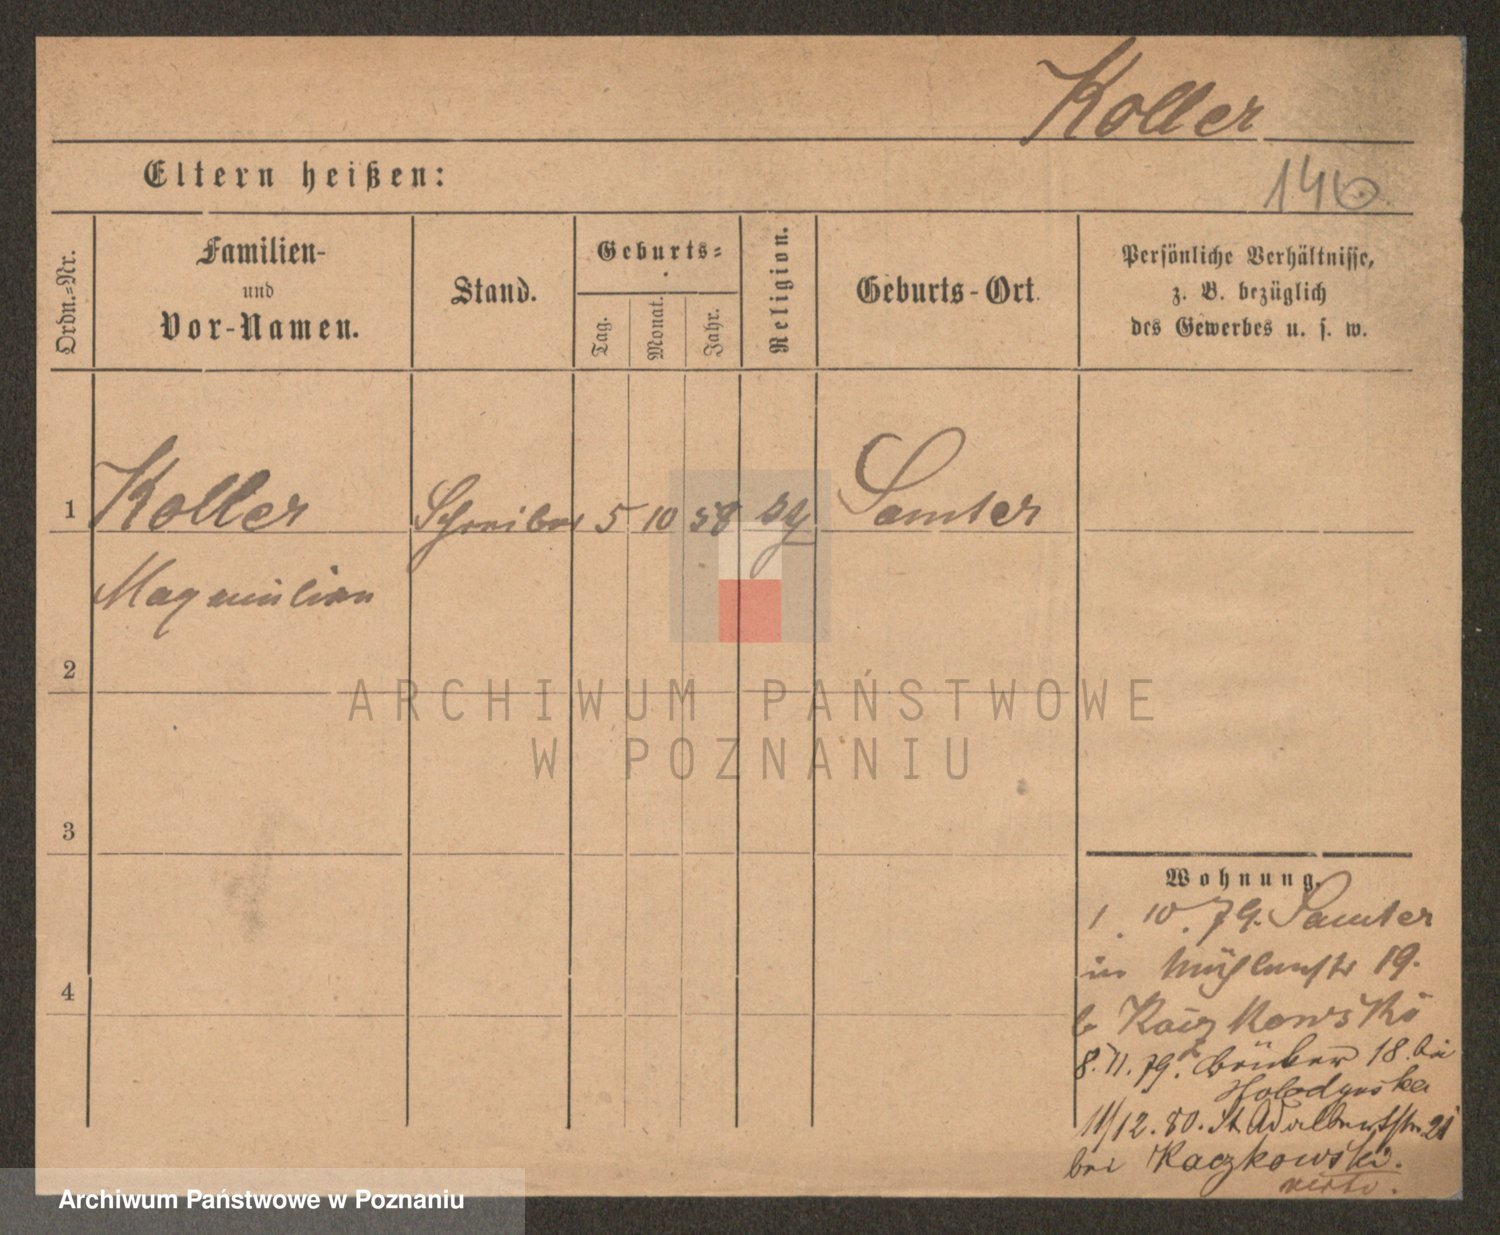 Koller
Eltern heißen:
146
Ordn.-Nr.
Familien-
und
Vor-Namen.
Stand.
Geburts-
Tag.
Monat.
Jahr.
Religion.
Geburts-Ort.
Persönliche Verhältnisse,
z. B. bezüglich
des Gewerbes u. s. w.
1 Koller Schreiber 5 10 58 Samter
Maxmilian
2
ARCHIWUM PAŃSTWOWE
W POZNANIU
3
Wohnung.
1. 10. 79. Samter
in Mühlenstr 19.
b Kaczkowski
8. 11. 79. 18. bei
Holodynska
11/12. 80. St. Adalbertstr. 21
bei Kaczkowski.
verte.
4
Archiwum Państwowe w Poznaniu